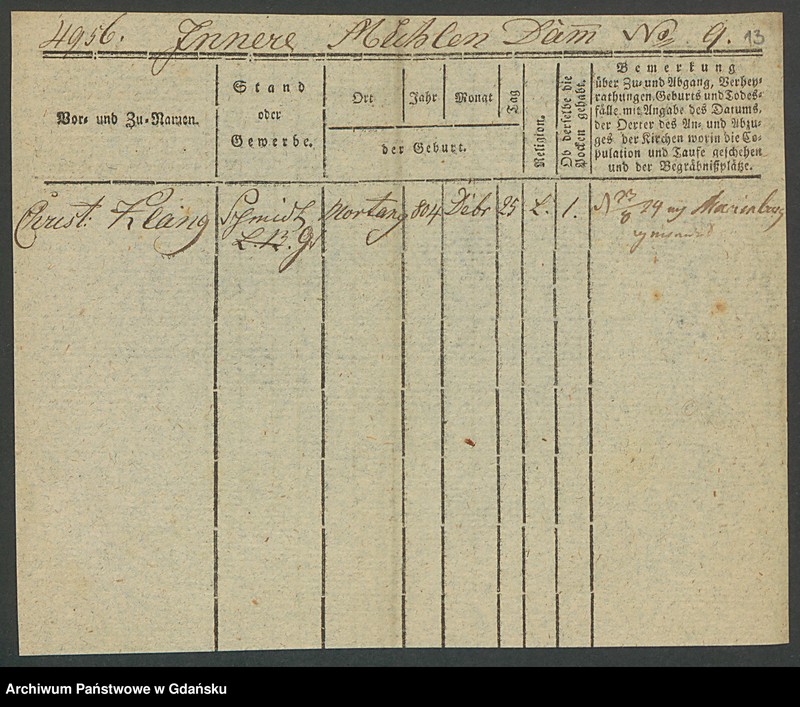 4956. Innere Mühlen Dam̄ No 9. 13
Vor- und Zu-Namen.
Stand
oder
Gewerbe.
Ort Jahr Monat Tag
der Geburt.
Religion.
Ob derselbe die
Pocken gehabt.
Bemerkung
über Zu- und Abgang, Verhey-
rathungen, Geburts und Todes-
fälle mit Angabe des Datums,
der Oerter des An- und Abzu-
ges der Kirchen worin die Co-
pulation und Taufe geschehen
und der Begräbnißplätze.
Christ: Klang Schmidt Morteng 804 Debr 25 L. 1. 23/8 24 Marienburg